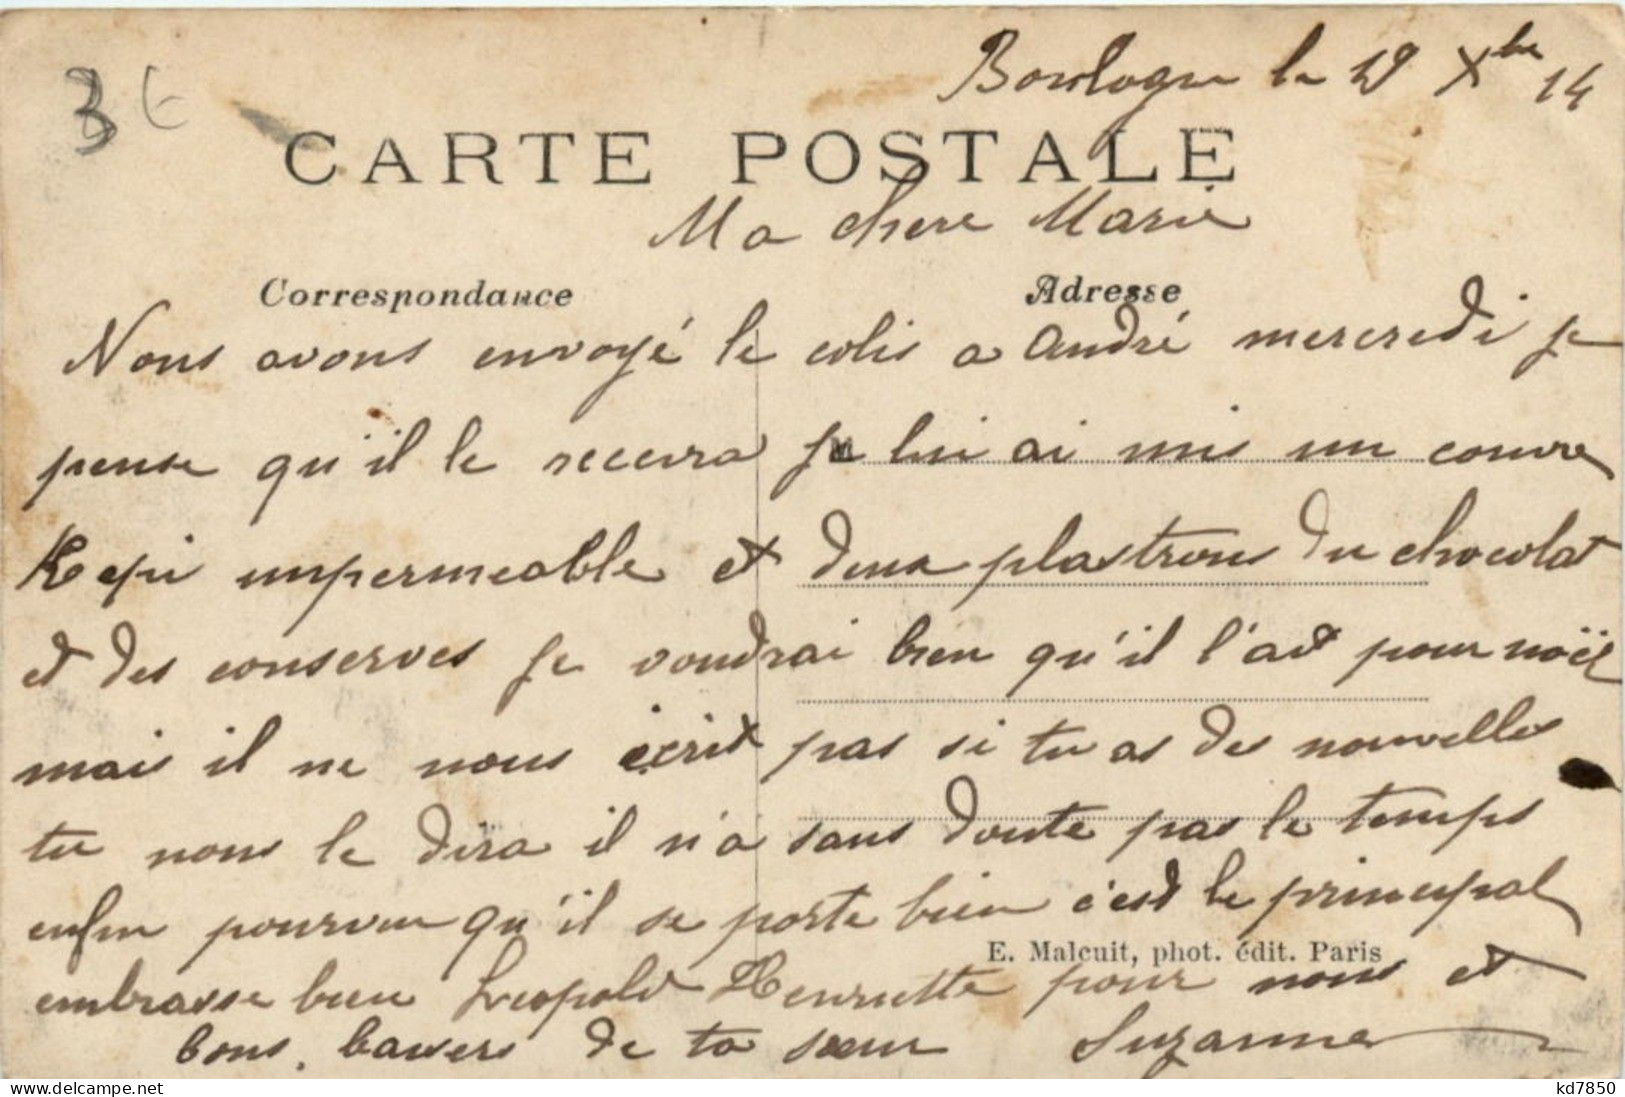 3 €
Boulogne le 19 Xbre 14
CARTE POSTALE
Ma chere Marie
Correspondance
Adresse
Nous avons envoyé le colis a André mercredi je
pense qu'il le recevra je lui ai mis un couvre
Kepi impermeable et deux plastrons du chocolat
et des conserves je voudrai bien qu'il l'ait pour noël
mais il ne nous écrit pas si tu as des nouvelles
tu nous le dira il n'a sans doute pas le temps
enfin pourvu qu'il se porte bien c'est le principal
E. Malcuit, phot. édit. Paris
embrasse bien Leopold Henriette pour nous et
bons baisers de ta sœur Suzanne
delcampe.net
kd7850